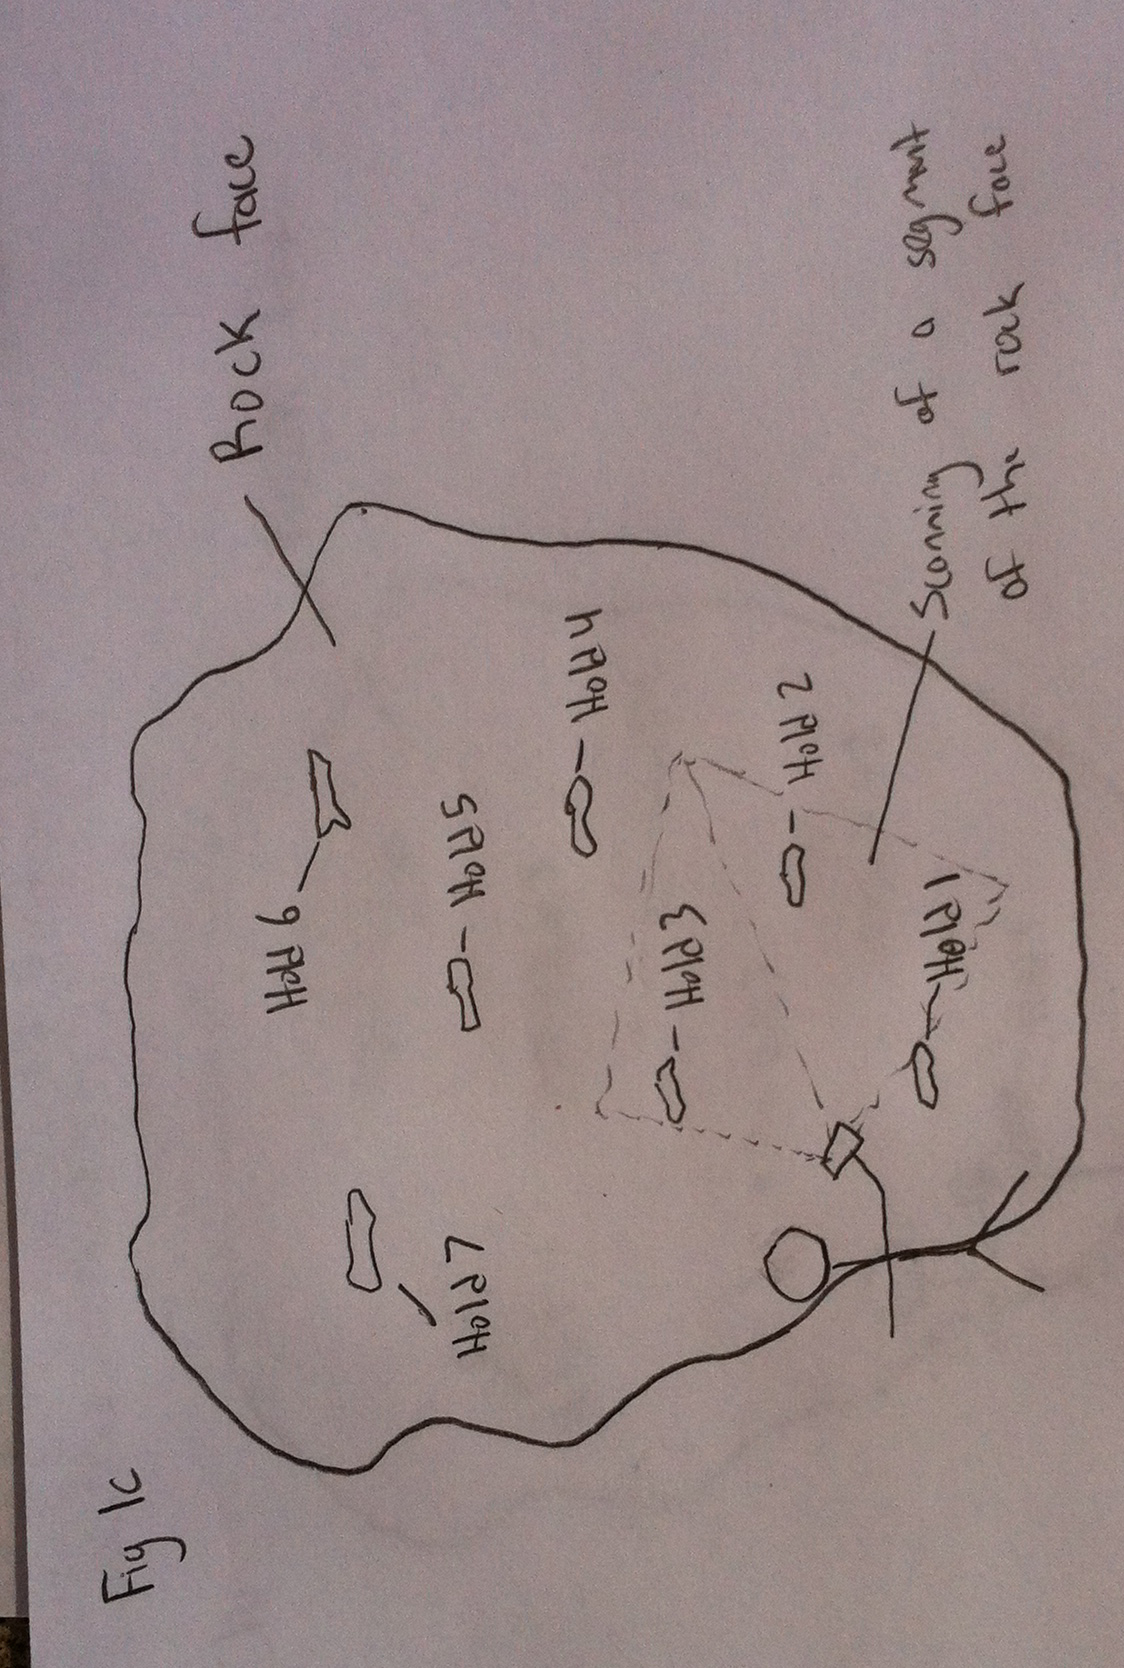 Fig 1c
Rock face
Hold 6
Hold 7
Hold 5
Hold 4
Hold 3
Hold 2
Hold 1
Scanning of a segment
of the rock face